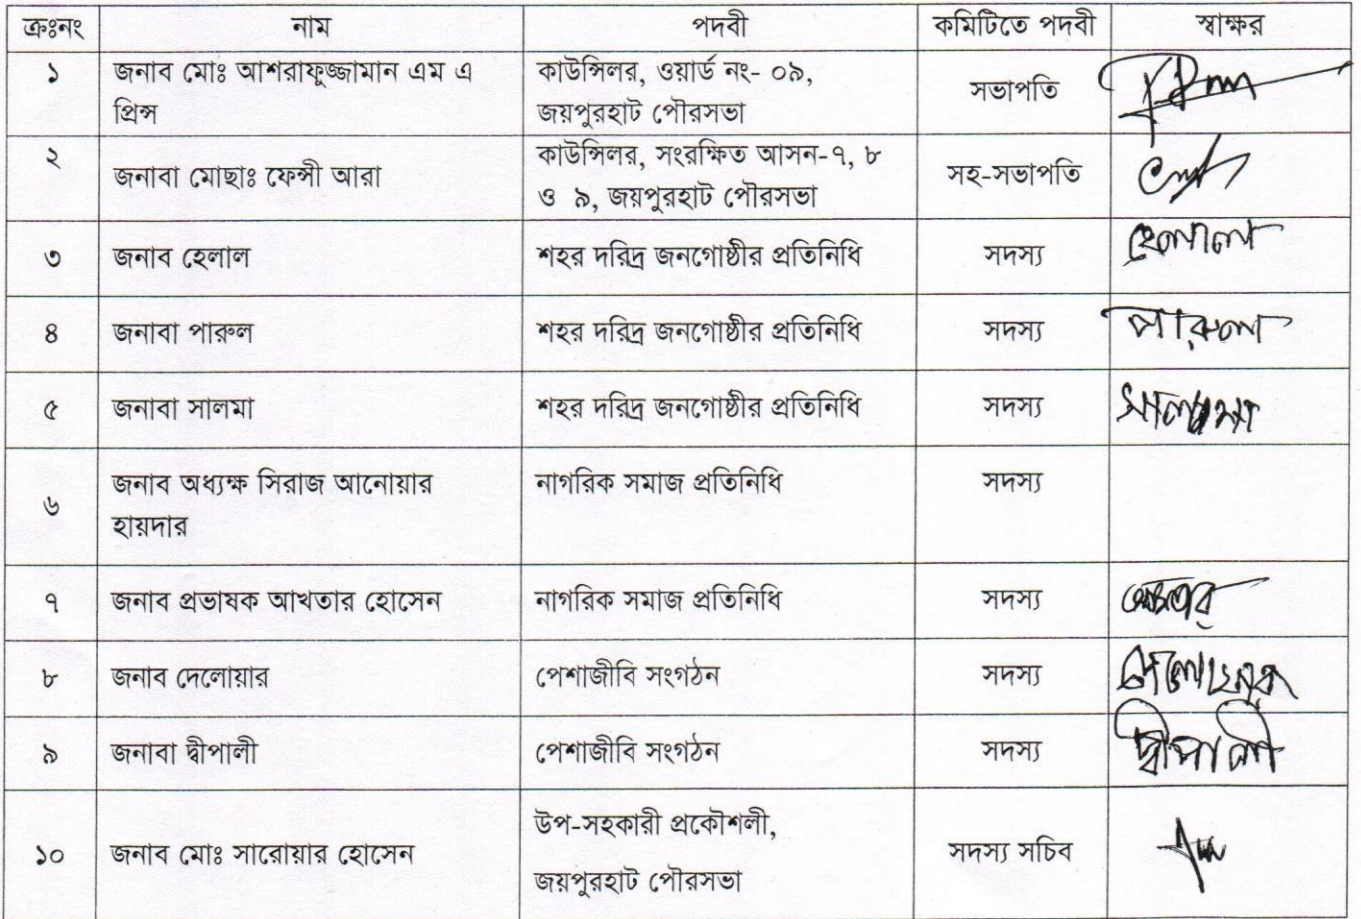 ক্রঃনং নাম পদবী কমিটিতে পদবী স্বাক্ষর
১ জনাব মোঃ আশরাফুজ্জামান এম এ প্রিন্স কাউন্সিলর, ওয়ার্ড নং- ০৯, জয়পুরহাট পৌরসভা সভাপতি
২ জনাবা মোছাঃ ফেন্সী আরা কাউন্সিলর, সংরক্ষিত আসন-৭, ৮ ও ৯, জয়পুরহাট পৌরসভা সহ-সভাপতি
৩ জনাব হেলাল শহর দরিদ্র জনগোষ্ঠীর প্রতিনিধি সদস্য হেলাল
৪ জনাবা পারুল শহর দরিদ্র জনগোষ্ঠীর প্রতিনিধি সদস্য পারুল
৫ জনাবা সালমা শহর দরিদ্র জনগোষ্ঠীর প্রতিনিধি সদস্য
৬ জনাব অধ্যক্ষ সিরাজ আনোয়ার হায়দার নাগরিক সমাজ প্রতিনিধি সদস্য
৭ জনাব প্রভাষক আখতার হোসেন নাগরিক সমাজ প্রতিনিধি সদস্য
৮ জনাব দেলোয়ার পেশাজীবি সংগঠন সদস্য
৯ জনাবা দ্বীপালী পেশাজীবি সংগঠন সদস্য দ্বীপালী
১০ জনাব মোঃ সারোয়ার হোসেন উপ-সহকারী প্রকৌশলী, জয়পুরহাট পৌরসভা সদস্য সচিব